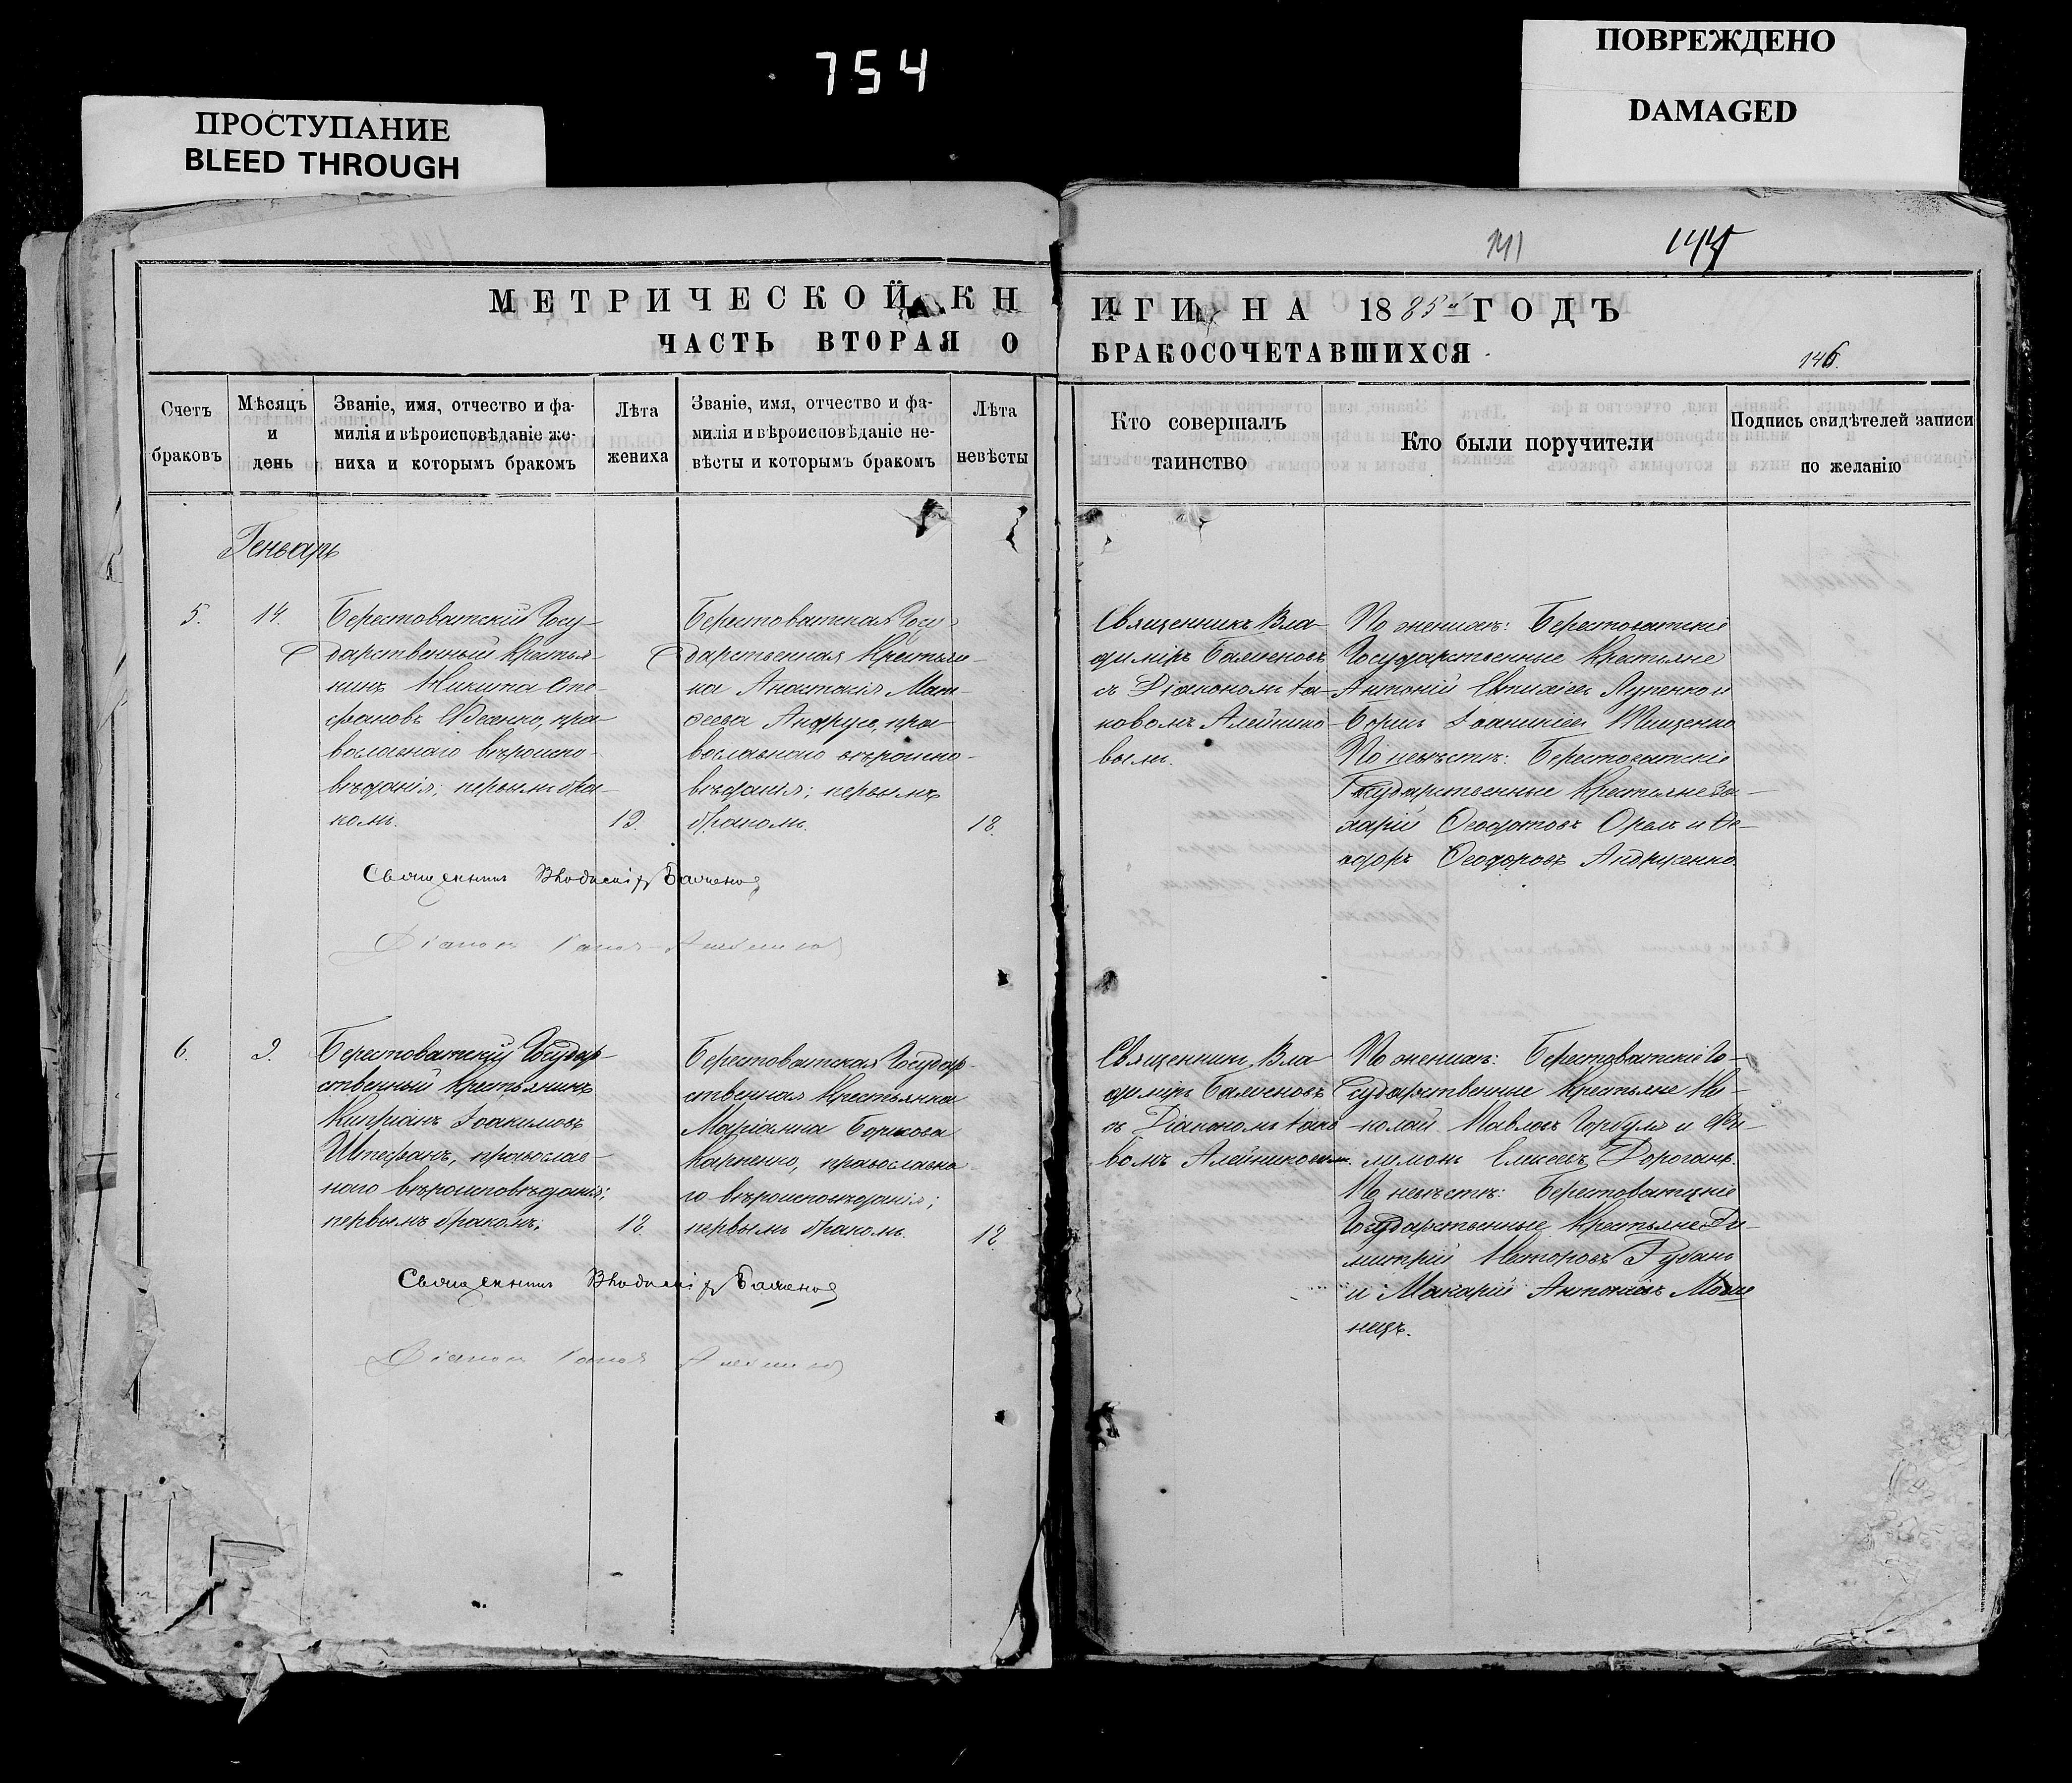 754
ПРОСТУПАНИЕ
BLEED THROUGH
ПОВРЕЖДЕНО
DAMAGED
141 144
МЕТРИЧЕСКОЙ КНИГИ НА 1885й ГОДЪ
ЧАСТЬ ВТОРАЯ О БРАКОСОЧЕТАВШИХСЯ
146.
Счетъ
браковъ
Мѣсяцъ
и
день
Званіе, имя, отчество и фа-
милія и вѣроисповѣданіе же-
ниха и которымъ бракомъ
Лѣта
жениха
Званіе, имя, отчество и фа-
милія и вѣроисповѣданіе не-
вѣсты и которымъ бракомъ
Лѣта
невѣсты
Кто совершалъ
таинство
Кто были поручители
Подпись свидѣтелей записи
по желанію
Генварь
5.
14.
Берестоватскій Госу-
дарственный Крестья-
нинъ Никита Сте-
фановъ пра-
вославнаго вѣроиспо-
вѣданія; первымъ бра-
комъ.
19.
Берестоватская Госу-
дарственная Крестьян-
ка Анастасія Мат-
ѳеева пра-
вославнаго вѣроиспо-
вѣданія; первымъ
бракомъ.
18.
Священникъ Вла-
диміръ Баженовъ
съ Діакономъ Іа-
ковомъ Алейнико-
вымъ.
По женихѣ: Берестоватскіе
Государственные Крестьяне
Антоній Луценко и
Борисъ Іоанникіевъ Тищенко
По невѣстѣ: Берестоватскіе
Государственные Крестьяне За-
харій Ѳеодотовъ Орелъ и Ѳе-
одоръ Ѳеодоровъ Андрусенко
Священникъ Владиміръ Баженовъ
Діаконъ Іаковъ Алейниковъ
6.
9.
Берестоватскій Государ-
ственный Крестьянинъ
Кипріанъ Іоакимовъ
Штефанъ, православ-
наго вѣроисповѣданія;
первымъ бракомъ;
18.
Берестоватская Государ-
ственная Крестьянка
Маріанна Борисова
Карпенко, православна
го вѣроисповѣданія;
первымъ бракомъ.
18.
Священникъ Вла-
диміръ Баженовъ
съ Діакономъ Іако-
вомъ Алейниковым.
По женихѣ: Берестоватскіе Го-
сударственные Крестьяне Ни-
колай Павловъ Горбуля и Фи-
лимонъ Елисеевъ Дороганъ.
По невѣстѣ: Берестоватскіе
Государственные Крестьяне Ди-
митрій Несторовъ Рубанъ
и Макарій Антоніевъ
нецъ.
Священникъ Владиміръ Баженовъ
Діаконъ Іаковъ Алейниковъ